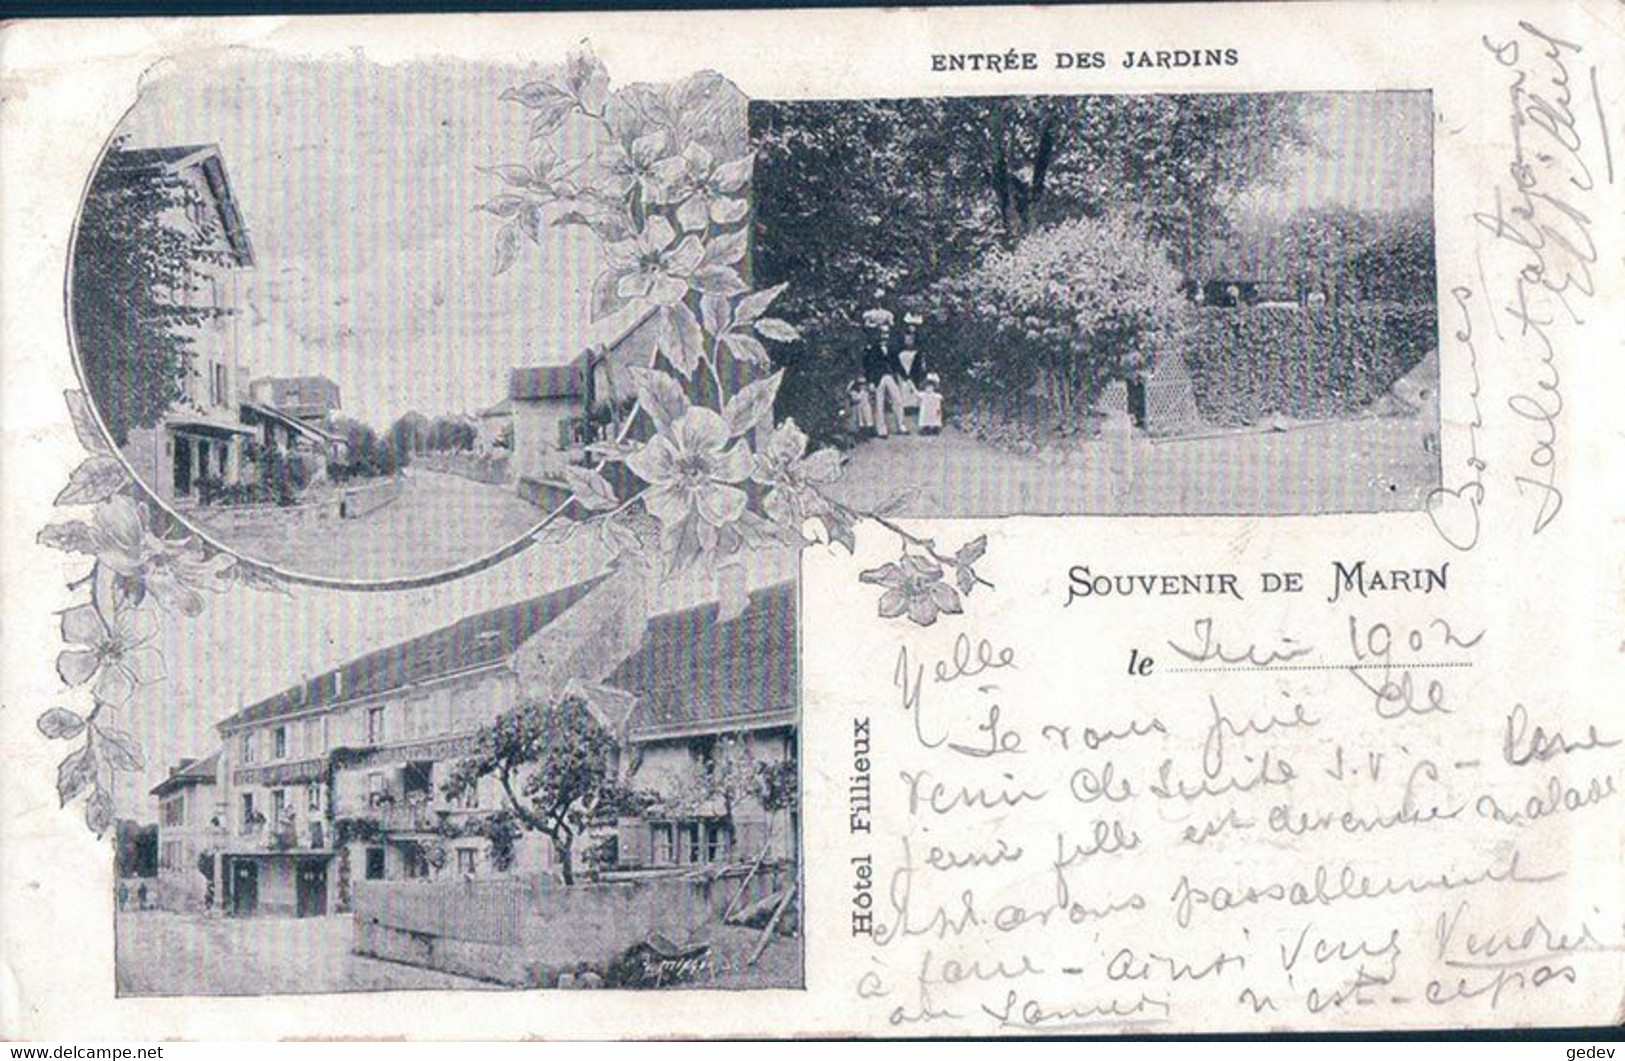 ENTRÉE DES JARDINS
SOUVENIR DE MARIN
le Juin 1902
Melle
Je vous prie de
venir de suite s.v.p - Une
jeune fille est devenue malade
et ns. avons passablement
à faire - ainsi venez Vendredi
ou Samedi n'est-ce pas
Bonnes
Salutations
E. Fillieux
Hôtel Fillieux
gedev